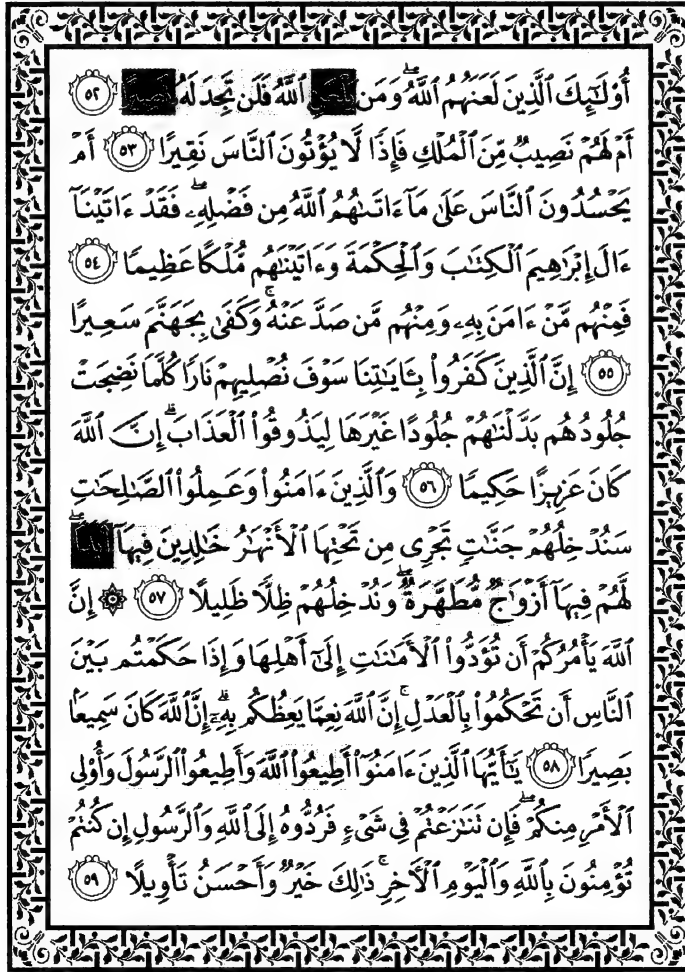 أُوْلَٰٓئِكَ ٱلَّذِينَ لَعَنَهُمُ ٱللَّهُۖ وَمَن ٱللَّهُ فَلَن تَجِدَ لَهُۥ ٥٢
أَمْ لَهُمْ نَصِيبٌ مِّنَ ٱلْمُلْكِ فَإِذًا لَّا يُؤْتُونَ ٱلنَّاسَ نَقِيرًا ٥٣ أَمْ
يَحْسُدُونَ ٱلنَّاسَ عَلَىٰ مَآ ءَاتَىٰهُمُ ٱللَّهُ مِن فَضْلِهِۦۖ فَقَدْ ءَاتَيْنَآ
ءَالَ إِبْرَٰهِيمَ ٱلْكِتَٰبَ وَٱلْحِكْمَةَ وَءَاتَيْنَٰهُم مُّلْكًا عَظِيمًا ٥٤
فَمِنْهُم مَّنْ ءَامَنَ بِهِۦ وَمِنْهُم مَّن صَدَّ عَنْهُۚ وَكَفَىٰ بِجَهَنَّمَ سَعِيرًا
٥٥ إِنَّ ٱلَّذِينَ كَفَرُوا۟ بِـَٔايَٰتِنَا سَوْفَ نُصْلِيهِمْ نَارًا كُلَّمَا نَضِجَتْ
جُلُودُهُم بَدَّلْنَٰهُمْ جُلُودًا غَيْرَهَا لِيَذُوقُوا۟ ٱلْعَذَابَۗ إِنَّ ٱللَّهَ
كَانَ عَزِيزًا حَكِيمًا ٥٦ وَٱلَّذِينَ ءَامَنُوا۟ وَعَمِلُوا۟ ٱلصَّٰلِحَٰتِ
سَنُدْخِلُهُمْ جَنَّٰتٍ تَجْرِى مِن تَحْتِهَا ٱلْأَنْهَٰرُ خَٰلِدِينَ فِيهَآ
لَّهُمْ فِيهَآ أَزْوَٰجٌ مُّطَهَّرَةٌۖ وَنُدْخِلُهُمْ ظِلًّا ظَلِيلًا ٥٧ ۞ إِنَّ
ٱللَّهَ يَأْمُرُكُمْ أَن تُؤَدُّوا۟ ٱلْأَمَٰنَٰتِ إِلَىٰٓ أَهْلِهَا وَإِذَا حَكَمْتُم بَيْنَ
ٱلنَّاسِ أَن تَحْكُمُوا۟ بِٱلْعَدْلِۚ إِنَّ ٱللَّهَ نِعِمَّا يَعِظُكُم بِهِۦٓۗ إِنَّ ٱللَّهَ كَانَ سَمِيعًۢا
بَصِيرًا ٥٨ يَٰٓأَيُّهَا ٱلَّذِينَ ءَامَنُوٓا۟ أَطِيعُوا۟ ٱللَّهَ وَأَطِيعُوا۟ ٱلرَّسُولَ وَأُو۟لِى
ٱلْأَمْرِ مِنكُمْۖ فَإِن تَنَٰزَعْتُمْ فِى شَىْءٍ فَرُدُّوهُ إِلَى ٱللَّهِ وَٱلرَّسُولِ إِن كُنتُمْ
تُؤْمِنُونَ بِٱللَّهِ وَٱلْيَوْمِ ٱلْـَٔاخِرِۚ ذَٰلِكَ خَيْرٌ وَأَحْسَنُ تَأْوِيلًا ٥٩